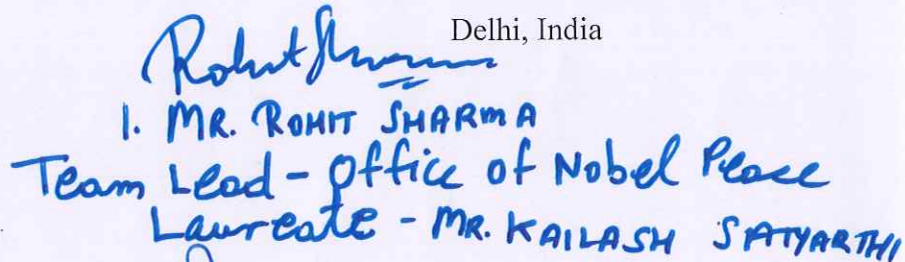 Delhi, India
Rohit Sharma
1. MR. ROHIT SHARMA
Team Lead - Office of Nobel Peace
Laureate - MR. KAILASH SATYARTHI